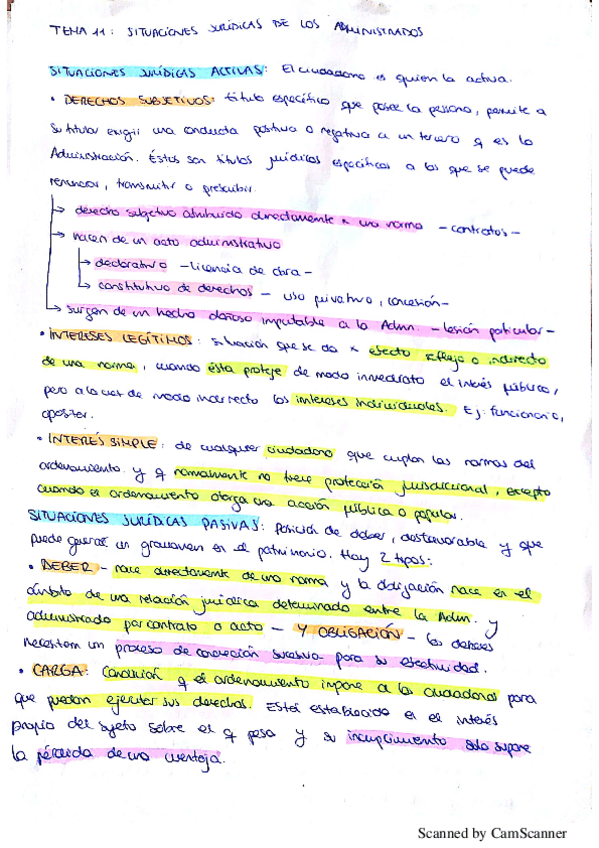 TEMA 11: SITUACIONES JURÍDICAS DE LOS ADMINISTRADOS
SITUACIONES JURÍDICAS ACTIVAS: El ciudadano es quien la activa.
• DERECHOS SUBJETIVOS: título específico que posee la persona, permite a
su titular exigir una conducta positiva o negativa a un tercero q es la
Administración. Éstos son títulos jurídicos específicos a los que se puede
renunciar, transmitir o prescribir.
→ derecho subjetivo atribuido directamente x una norma - contratos -
→ nacen de un acto administrativo
→ declarativo - licencia de obra -
→ constitutivo de derechos - uso privativo, concesión -
→ surgen de un hecho dañoso imputable a la Admn. - lesión particular -
• INTERESES LEGÍTIMOS: situación que se da x efecto reflejo o indirecto
de una norma, cuando ésta proteje de modo inmediato el interés público,
pero a la vez de modo indirecto los intereses individuales. Ej: funcionario,
opositor.
• INTERÉS SIMPLE: de cualquier ciudadano que cumplan las normas del
ordenamiento. y q normalmente no tiene protección jurisdiccional, excepto
cuando el ordenamiento otorga una acción pública o popular.
SITUACIONES JURÍDICAS PASIVAS: Posición de deber, desfavorable y que
puede generar un gravamen en el patrimonio. Hay 2 tipos:
• DEBER - nace directamente de una norma y la obligación nace en el
ámbito de una relación jurídica determinada entre la Admn. y
administrado por contrato o acto - Y OBLIGACIÓN - los deberes
necesitan un proceso de concreción sucesiva para su efectividad.
• CARGA: Condición q el ordenamiento impone a los ciudadanos para
que puedan ejercitar sus derechos. Está establecido en el interés
propio del sujeto sobre el q pesa y su incumplimiento solo supone
la pérdida de una ventaja.
Scanned by CamScanner